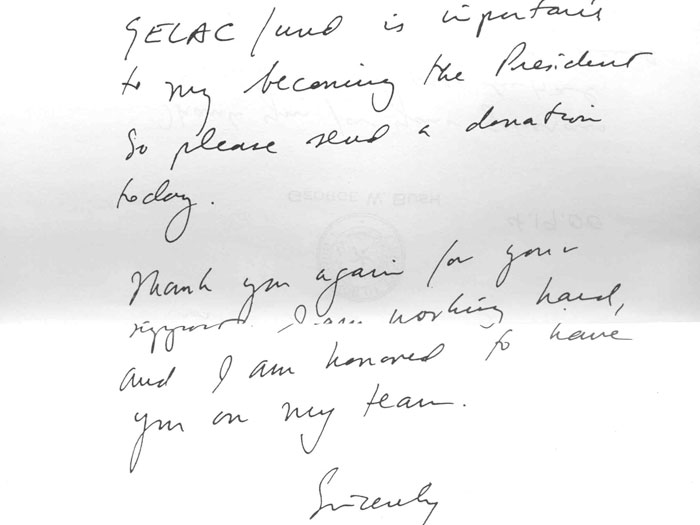 GELAC fund is important
to my becoming the President
So please send a donation
today.
GEORGE W. BUSH
Thank you again for your
support. I am working hard,
and I am honored to have
you on my team.
Sincerely